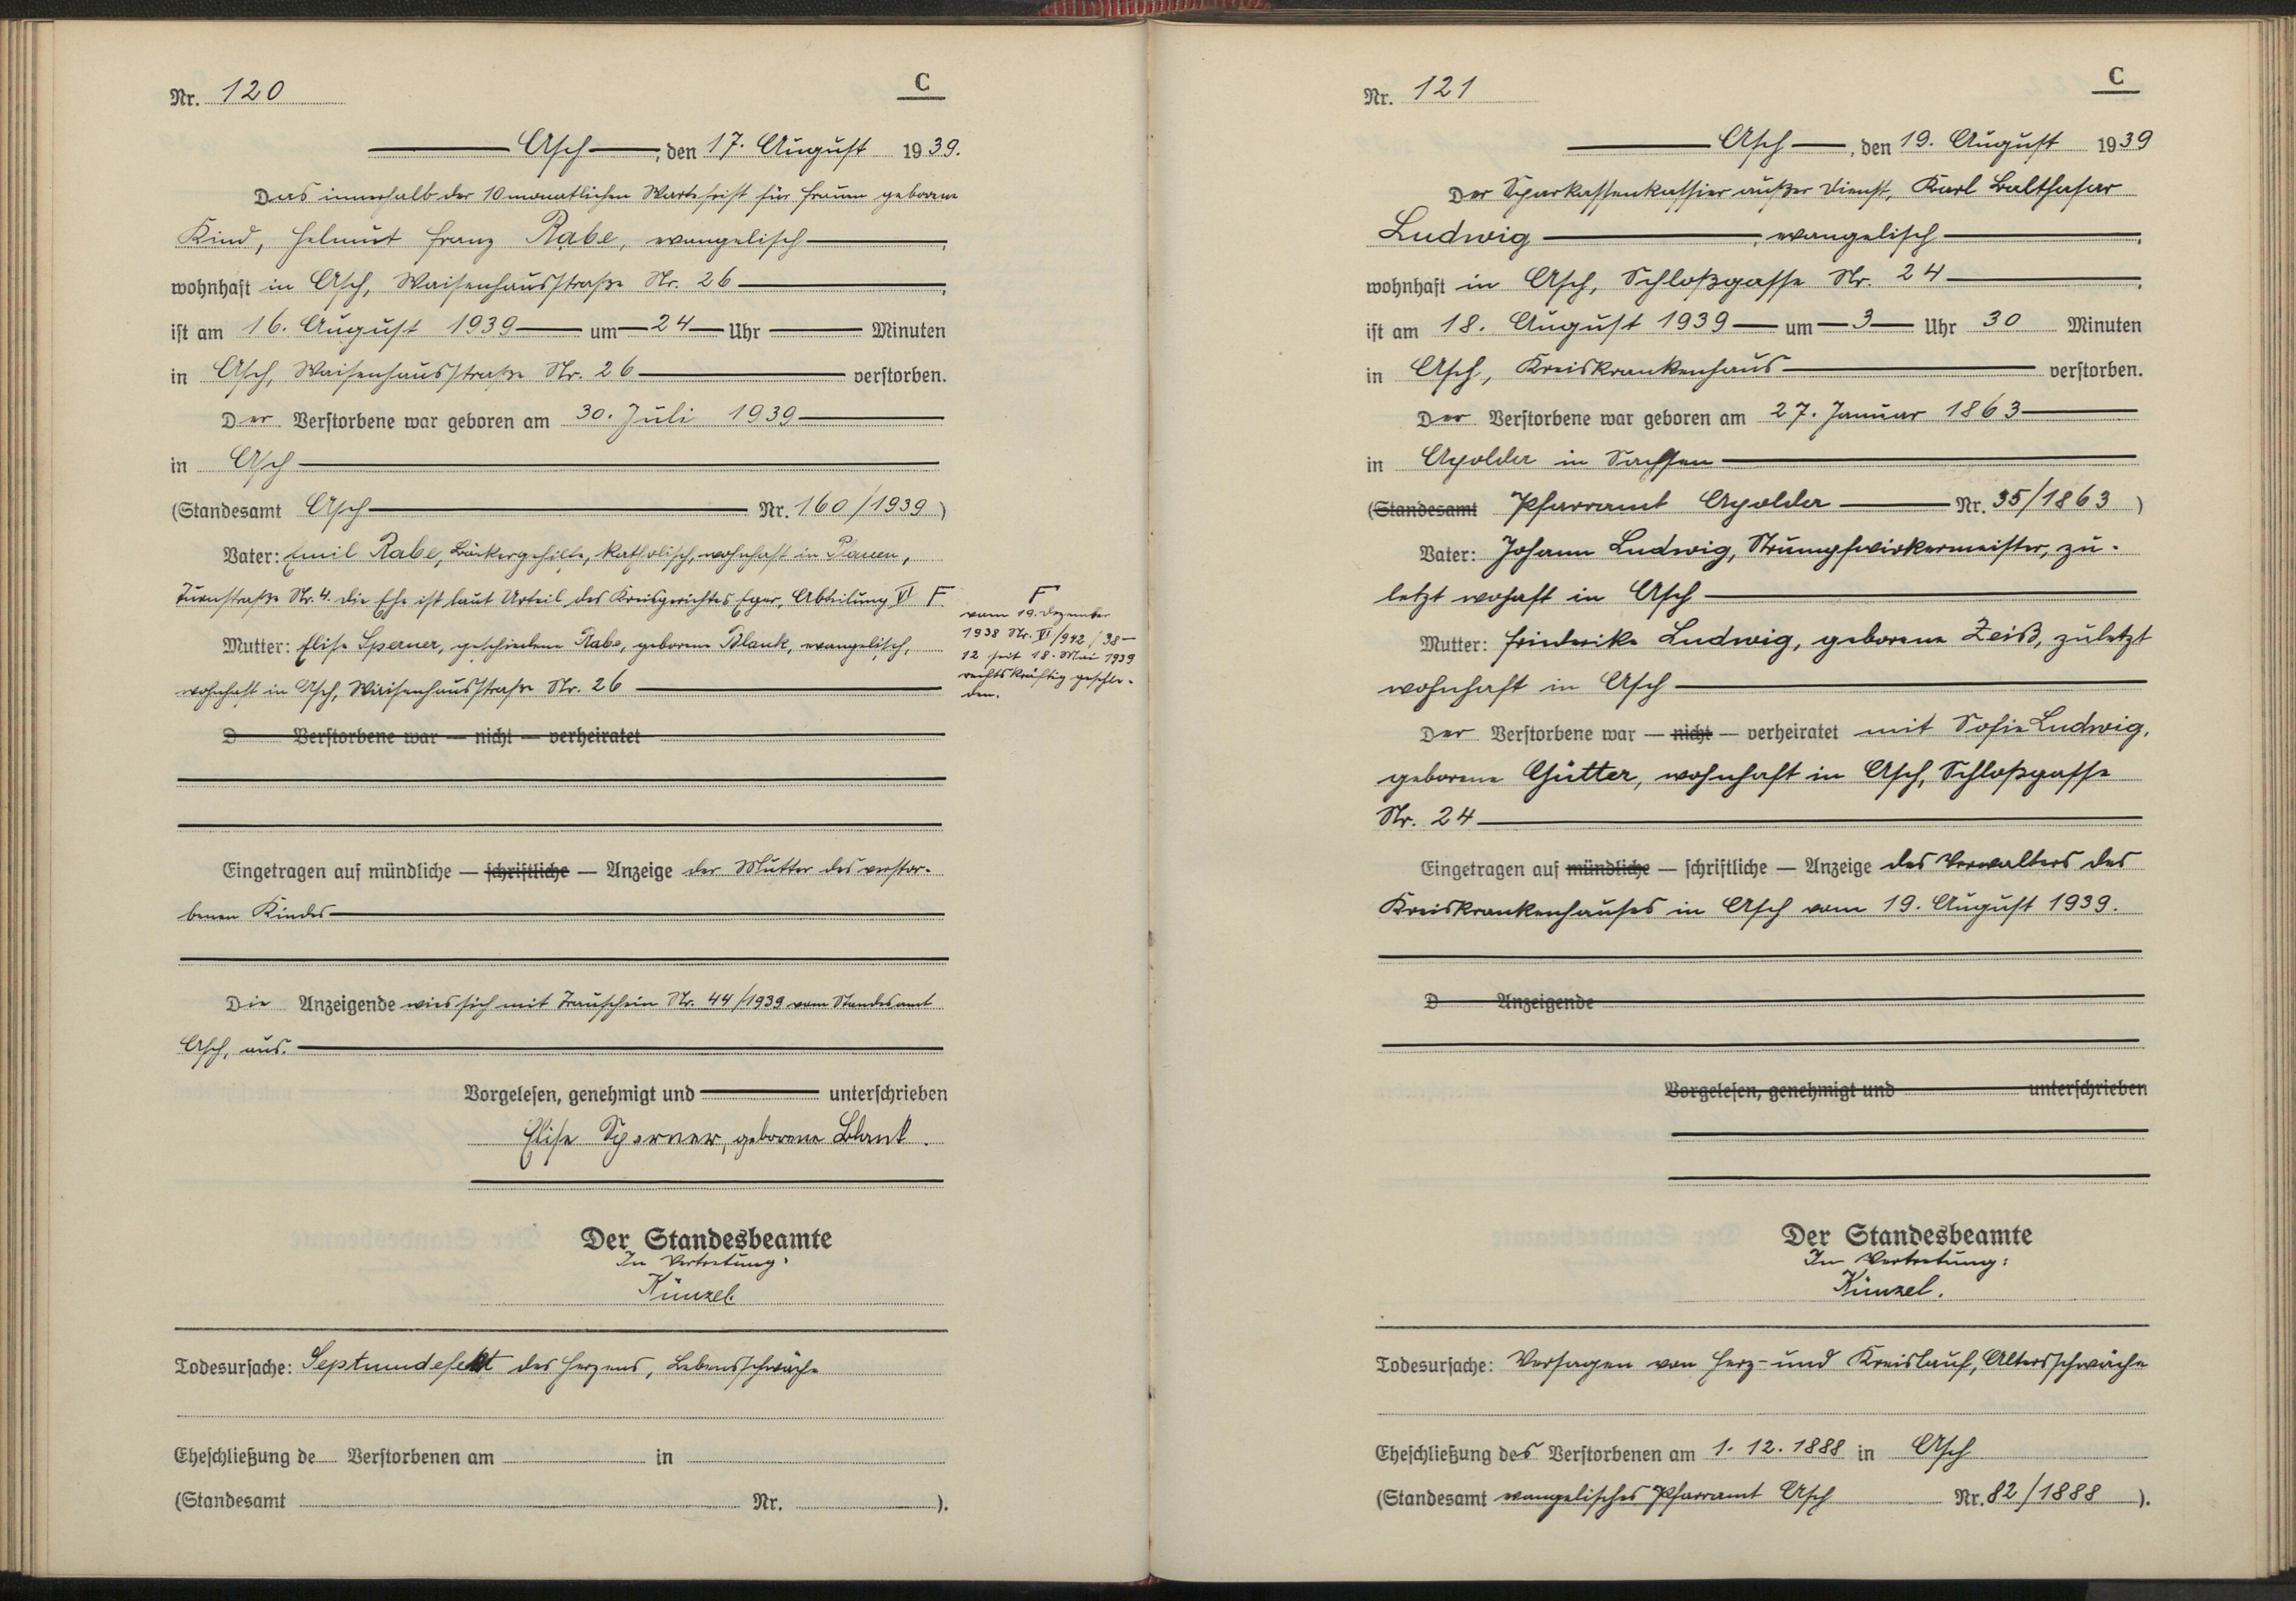 Nr. 120
C
Asch, den 17. August 1939.
Das innerhalb der 10 monatlichen Wartefrist für Frauen geborene
Kind, Helmut Franz Rabe, evangelisch,
wohnhaft in Asch, Waisenhausstraße Nr. 26,
ist am 16. August 1939 um 24 Uhr Minuten
in Asch, Waisenhausstraße Nr. 26 verstorben.
Der Verstorbene war geboren am 30. Juli 1939
in Asch
(Standesamt Asch Nr. 160/1939)
Vater: Emil Rabe, Bäckergehilfe, katholisch, wohnhaft in Plauen,
Turnstraße Nr. 4. Die Ehe ist laut Urteil des Kreisgerichtes Eger, Abteilung VI F
F
vom 19. Dezember
1938 Nr. VI/942/38-
12 seit 18. Mai 1939
rechtskräftig geschie-
den.
Mutter: Elise Sperner, geschiedene Rabe, geborene Blank, evangelisch,
wohnhaft in Asch, Waisenhausstraße Nr. 26
D Verstorbene war — nicht — verheiratet
Eingetragen auf mündliche — schriftliche — Anzeige der Mutter des verstor-
benen Kindes
Die Anzeigende wies sich mit Trauschein Nr. 44/1939 vom Standesamt
Asch, aus.
Vorgelesen, genehmigt und unterschrieben
Elise Sperner, geborene Blank.
Der Standesbeamte
In Vertretung:
Künzel.
Todesursache: Septumdefekt des Herzens, Lebensschwäche
Eheschließung de Verstorbenen am in
(Standesamt Nr. ).
Nr. 121
C
Asch, den 19. August 1939
Der Sparkassenkassier außer Dienst, Karl Balthasar
Ludwig, evangelisch,
wohnhaft in Asch, Schloßgasse Nr. 24,
ist am 18. August 1939 um 3 Uhr 30 Minuten
in Asch, Kreiskrankenhaus verstorben.
Der Verstorbene war geboren am 27. Januar 1863
in Apolda in Sachsen
(Standesamt Pfarramt Apolda Nr. 35/1863)
Vater: Johann Ludwig, Strumpfwirkermeister, zu-
letzt wohaft in Asch
Mutter: Friederike Ludwig, geborene Zeiß, zuletzt
wohnhaft in Asch
Der Verstorbene war — nicht — verheiratet mit Sofie Ludwig,
geborene Gütter, wohnhaft in Asch, Schloßgasse
Nr. 24
Eingetragen auf mündliche — schriftliche — Anzeige des Verwalters des
Kreiskrankenhauses in Asch vom 19. August 1939.
D Anzeigende
Vorgelesen, genehmigt und unterschrieben
Der Standesbeamte
In Vertretung:
Künzel.
Todesursache: Versagen von Herz- und Kreislauf, Altersschwäche
Eheschließung des Verstorbenen am 1. 12. 1888 in Asch
(Standesamt evangelisches Pfarramt Asch Nr. 82/1888).